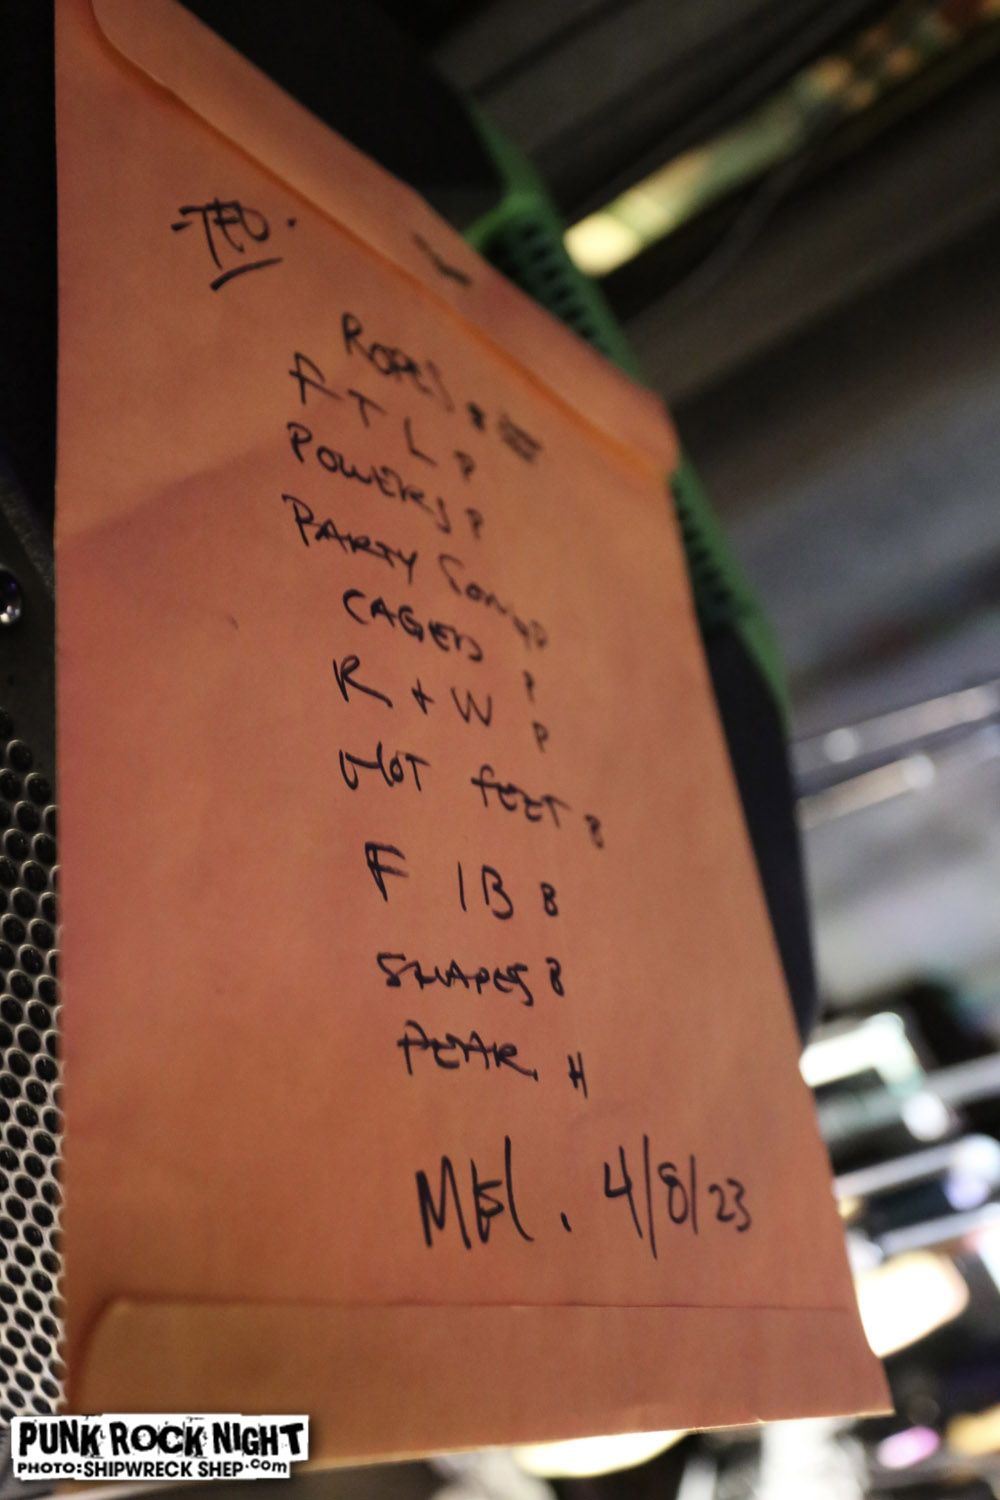 -TFD-
ROPES B
F T L P
POWERS P
PARTY SONG P
CAGED P
R + W P
HOT FEET B
F I B B
SHAPES B
PEAR H
4/8/23
PUNK ROCK NIGHT
PHOTO: SHIPWRECK SHEP.COM